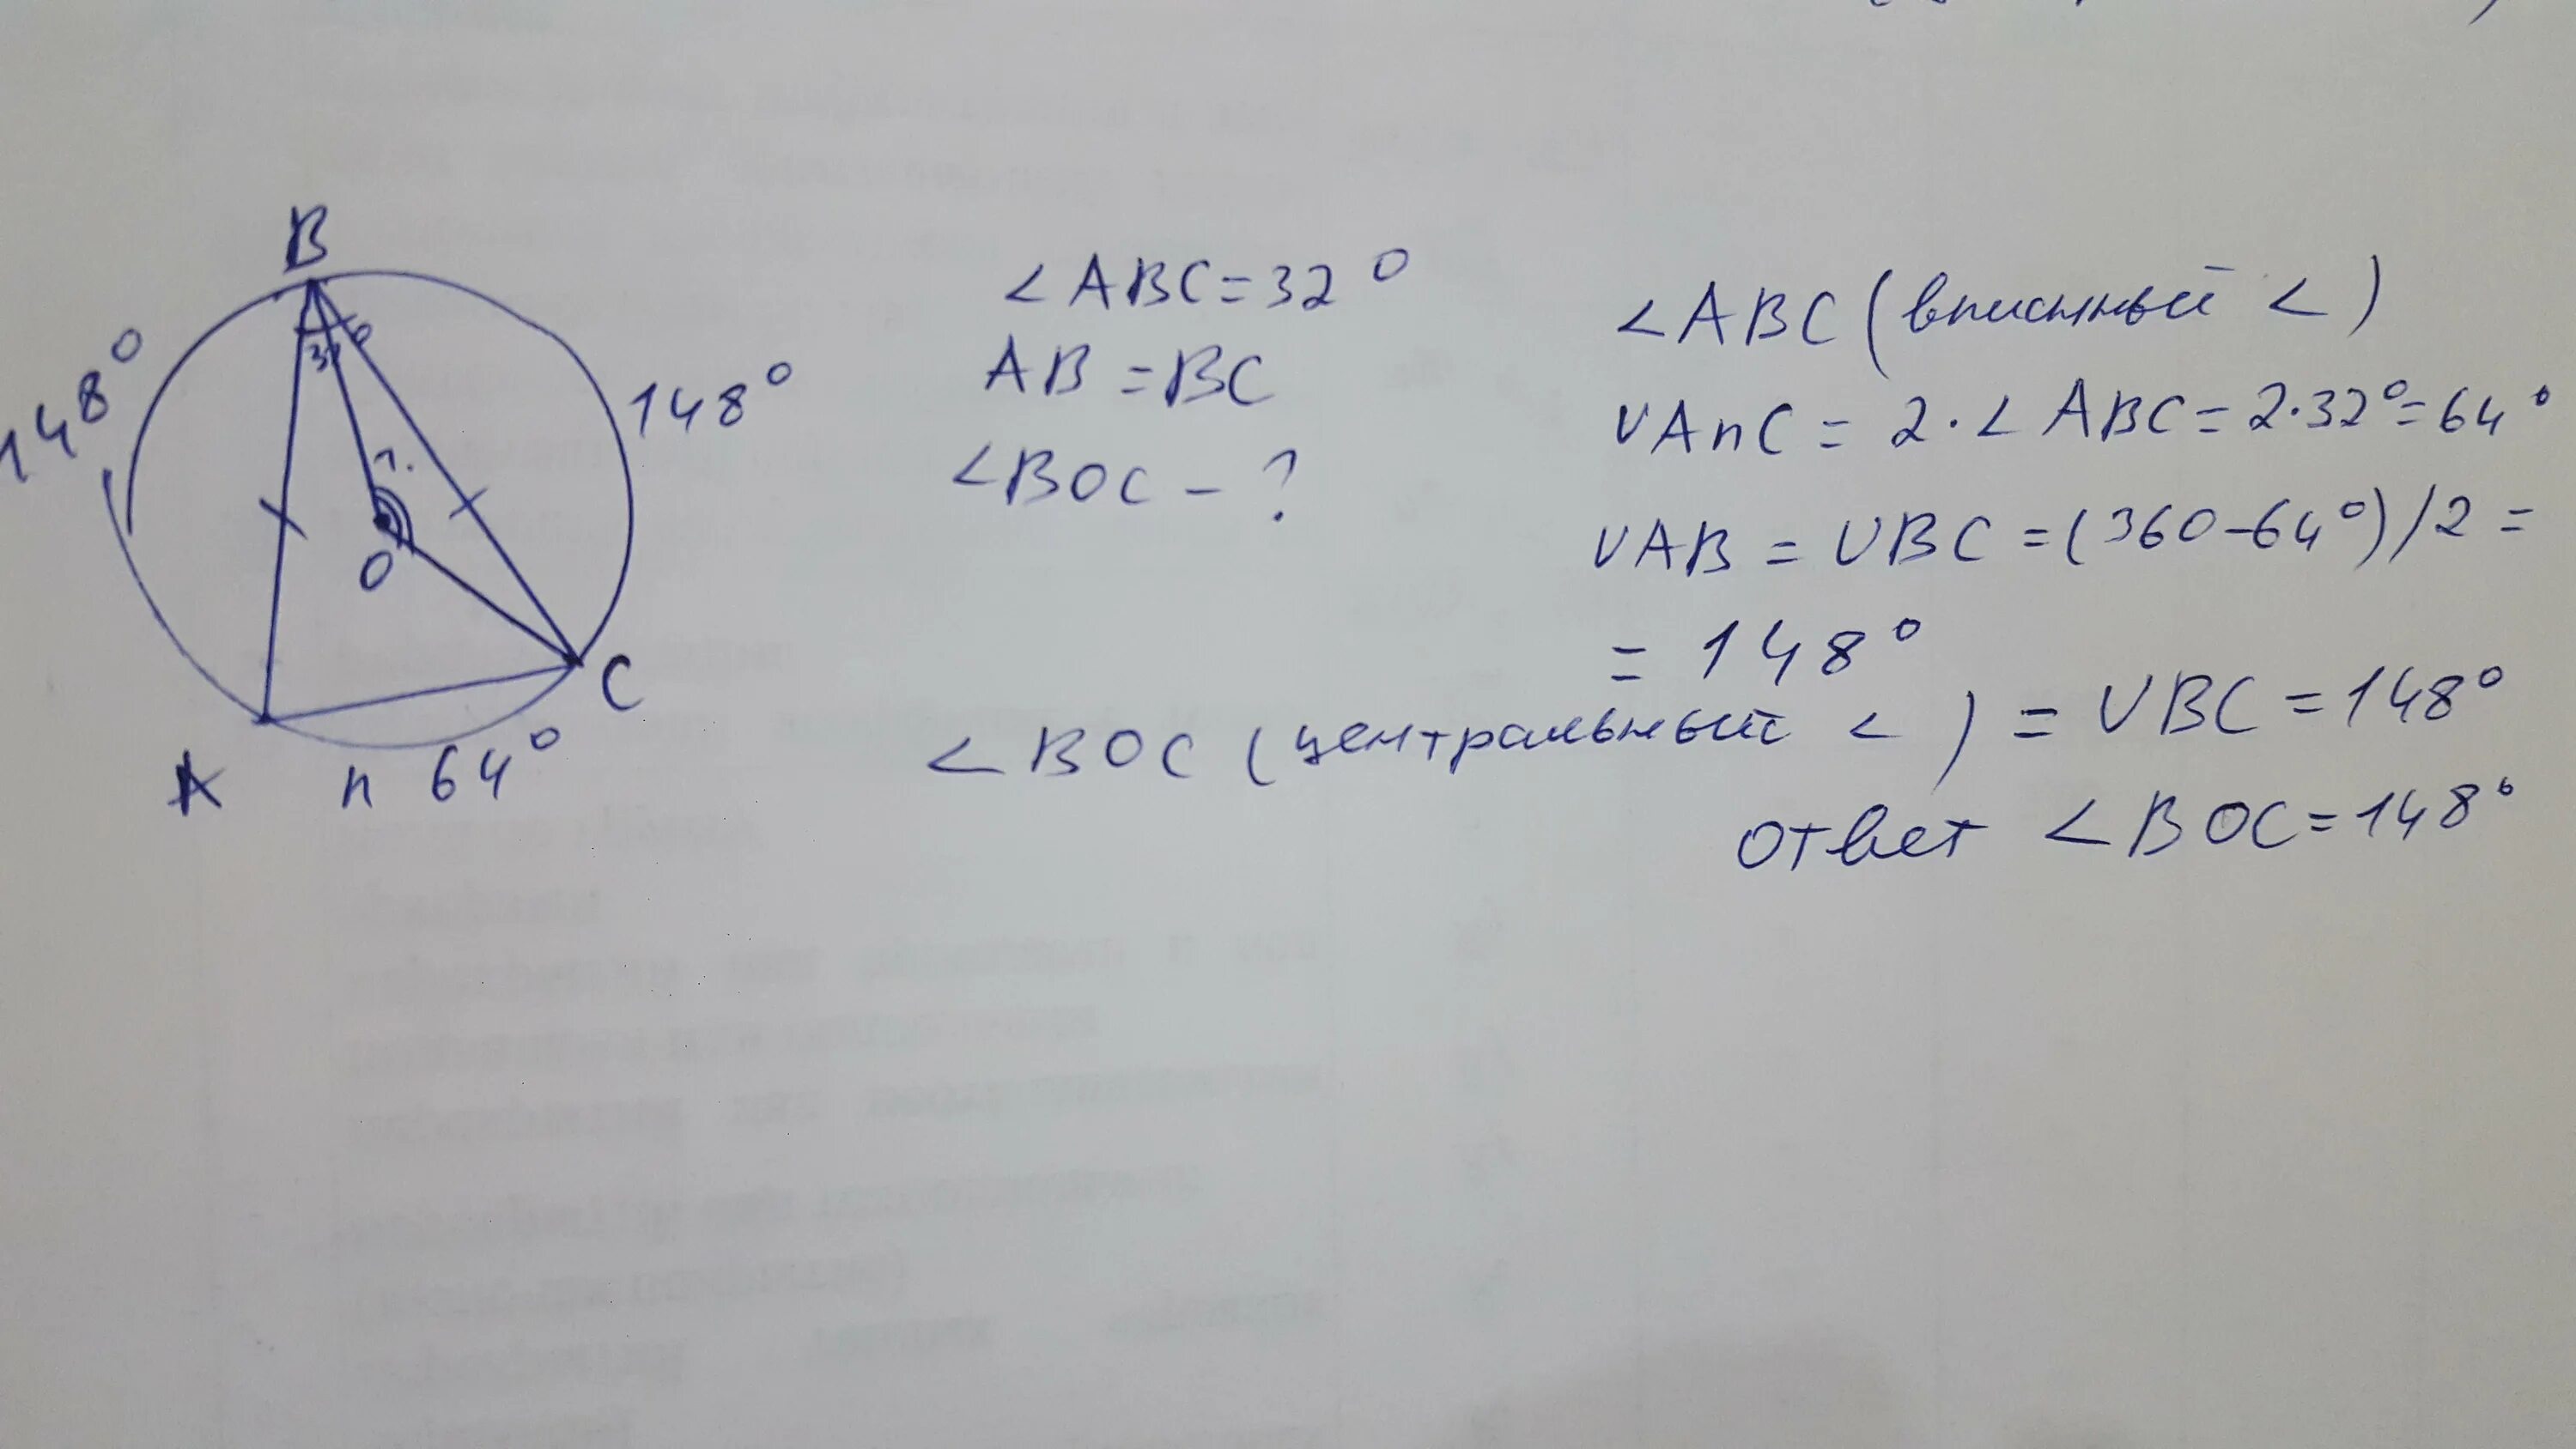 B
148°
32°
148°
?.
O
C
A
n 64°
∠ABC=32°
AB=BC
∠BOC-?
∠ABC(вписнный ∠)
∪AnC=2·∠ABC=2·32°=64°
∪AB=∪BC=(360-64°)/2=
=148°
∠BOC(центральный ∠)=∪BC=148°
ответ ∠BOC=148°